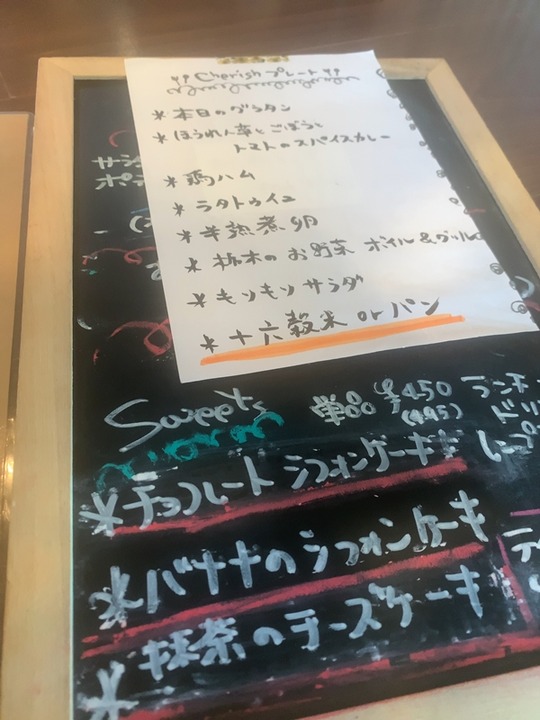 Cherish プレート
* 本日のグラタン
* ほうれん草とごぼうと
トマトのスパイスカレー
* 鶏ハム
* ラタトゥイユ
* 半熟煮卵
* 栃木のお野菜 ボイル&グリル
* もりもりサラダ
* 十六穀米 or パン
Sweets 単品 ¥450
(495)
* チョコレートシフォンケーキ
* バナナのシフォンケーキ
* 抹茶のチーズケーキ